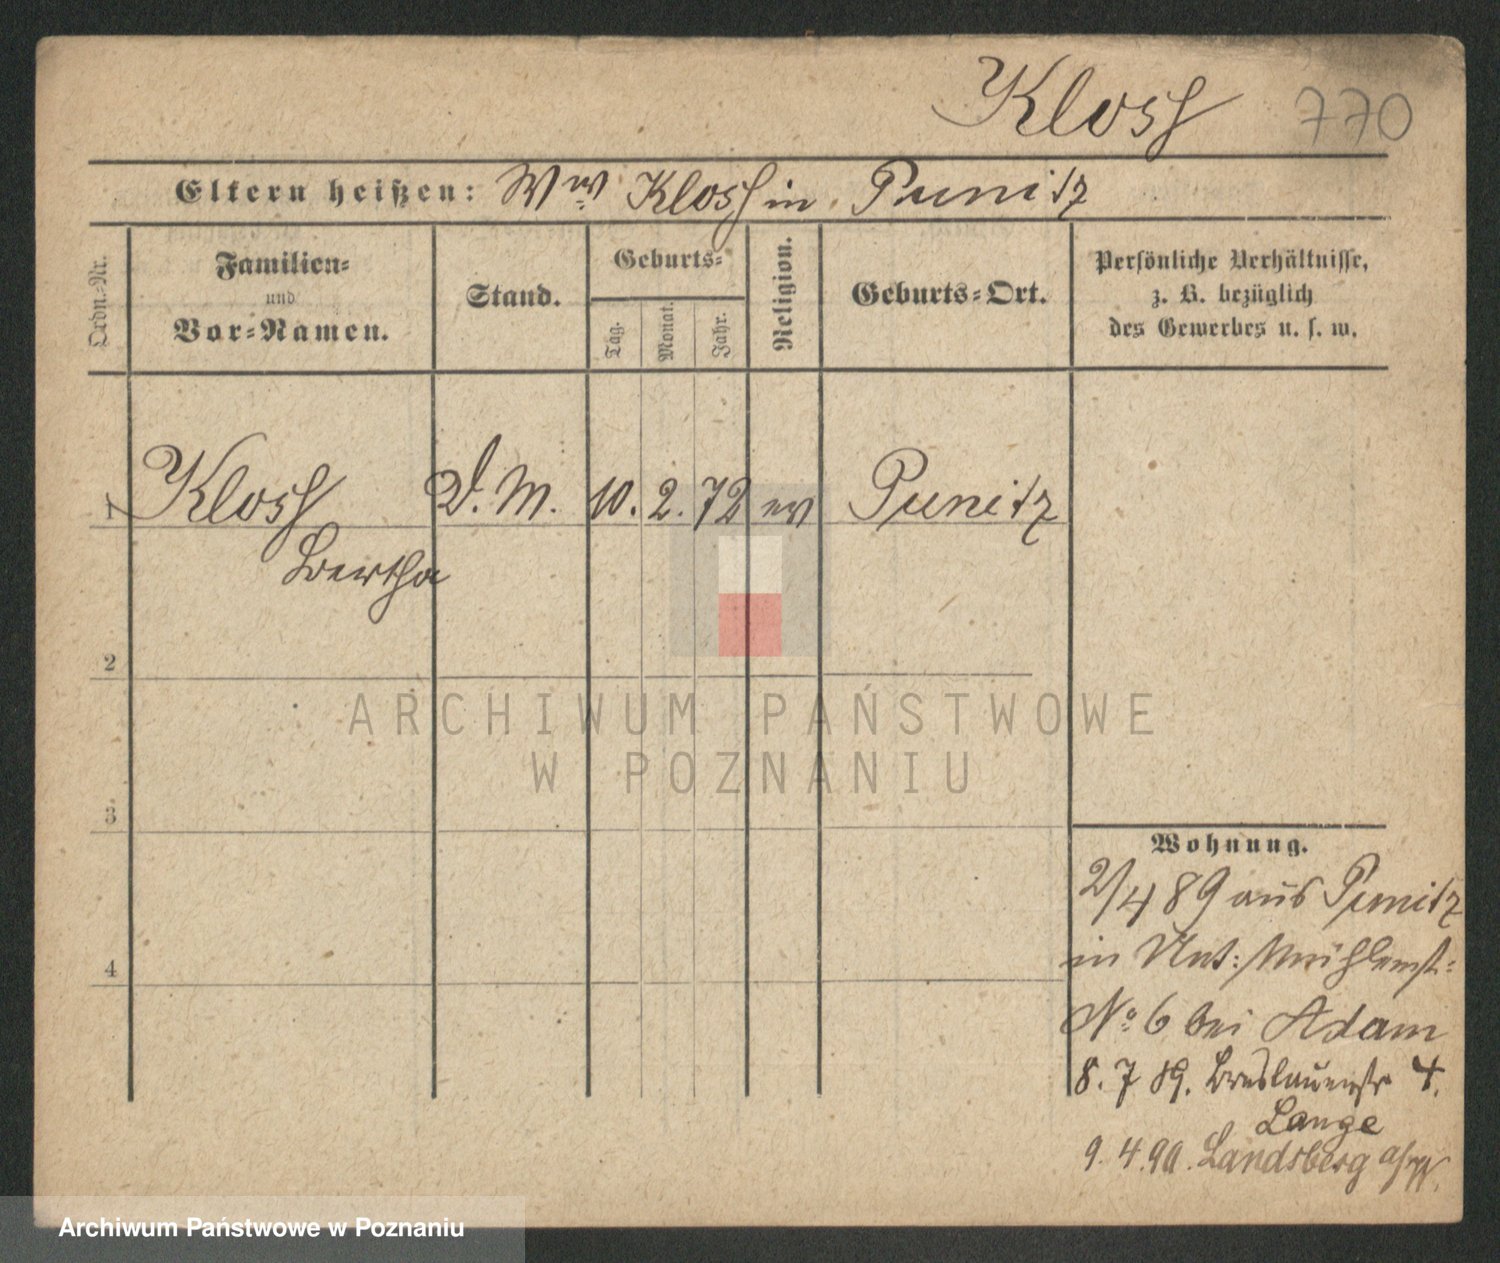 Klosſ 770
Eltern heißen: Wwe Klosſ in Punitz
Ordn.-Nr.
Familien-
und
Vor-Namen.
Stand.
Geburts-
Tag.
Monat.
Jahr.
Religion.
Geburts-Ort.
Persönliche Verhältnisse,
z. B. bezüglich
des Gewerbes u. s. w.
1 Klosſ D. M. 10. 2. 72 ev Punitz
Bertha
2
3
4
Wohnung.
2/4 89 aus Punitz
in Unt: Mühlenst:
No 6 bei Adam
8. 7 89. Breslauerstr 4.
Lange
9. 4. 90. Landsberg a/W.
ARCHIWUM PAŃSTWOWE
W POZNANIU
Archiwum Państwowe w Poznaniu